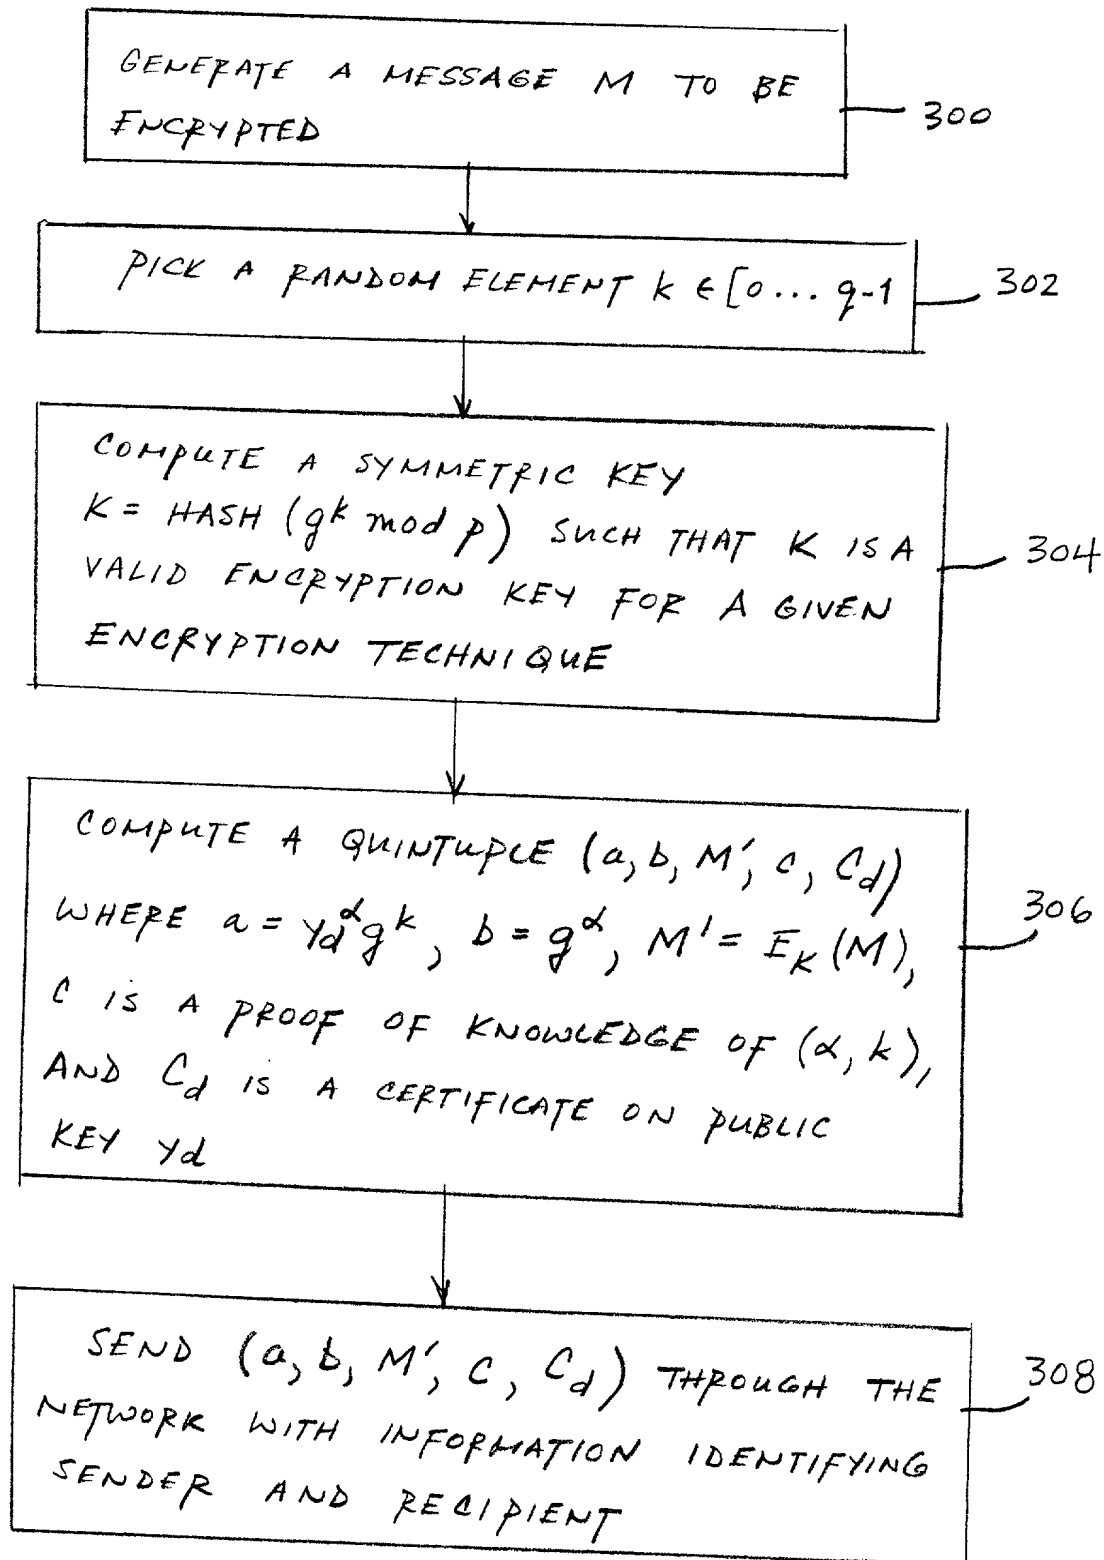 GENERATE A MESSAGE M TO BE
ENCRYPTED
300
PICK A RANDOM ELEMENT k ∈ [0... q-1
302
COMPUTE A SYMMETRIC KEY
K = HASH (g^k mod p) SUCH THAT K IS A
VALID ENCRYPTION KEY FOR A GIVEN
ENCRYPTION TECHNIQUE
304
COMPUTE A QUINTUPLE (a, b, M', c, C_d)
WHERE a = y_d^α g^k, b = g^α, M' = E_K (M),
C IS A PROOF OF KNOWLEDGE OF (α, k),
AND C_d IS A CERTIFICATE ON PUBLIC
KEY yd
306
SEND (a, b, M', c, C_d) THROUGH THE
NETWORK WITH INFORMATION IDENTIFYING
SENDER AND RECIPIENT
308